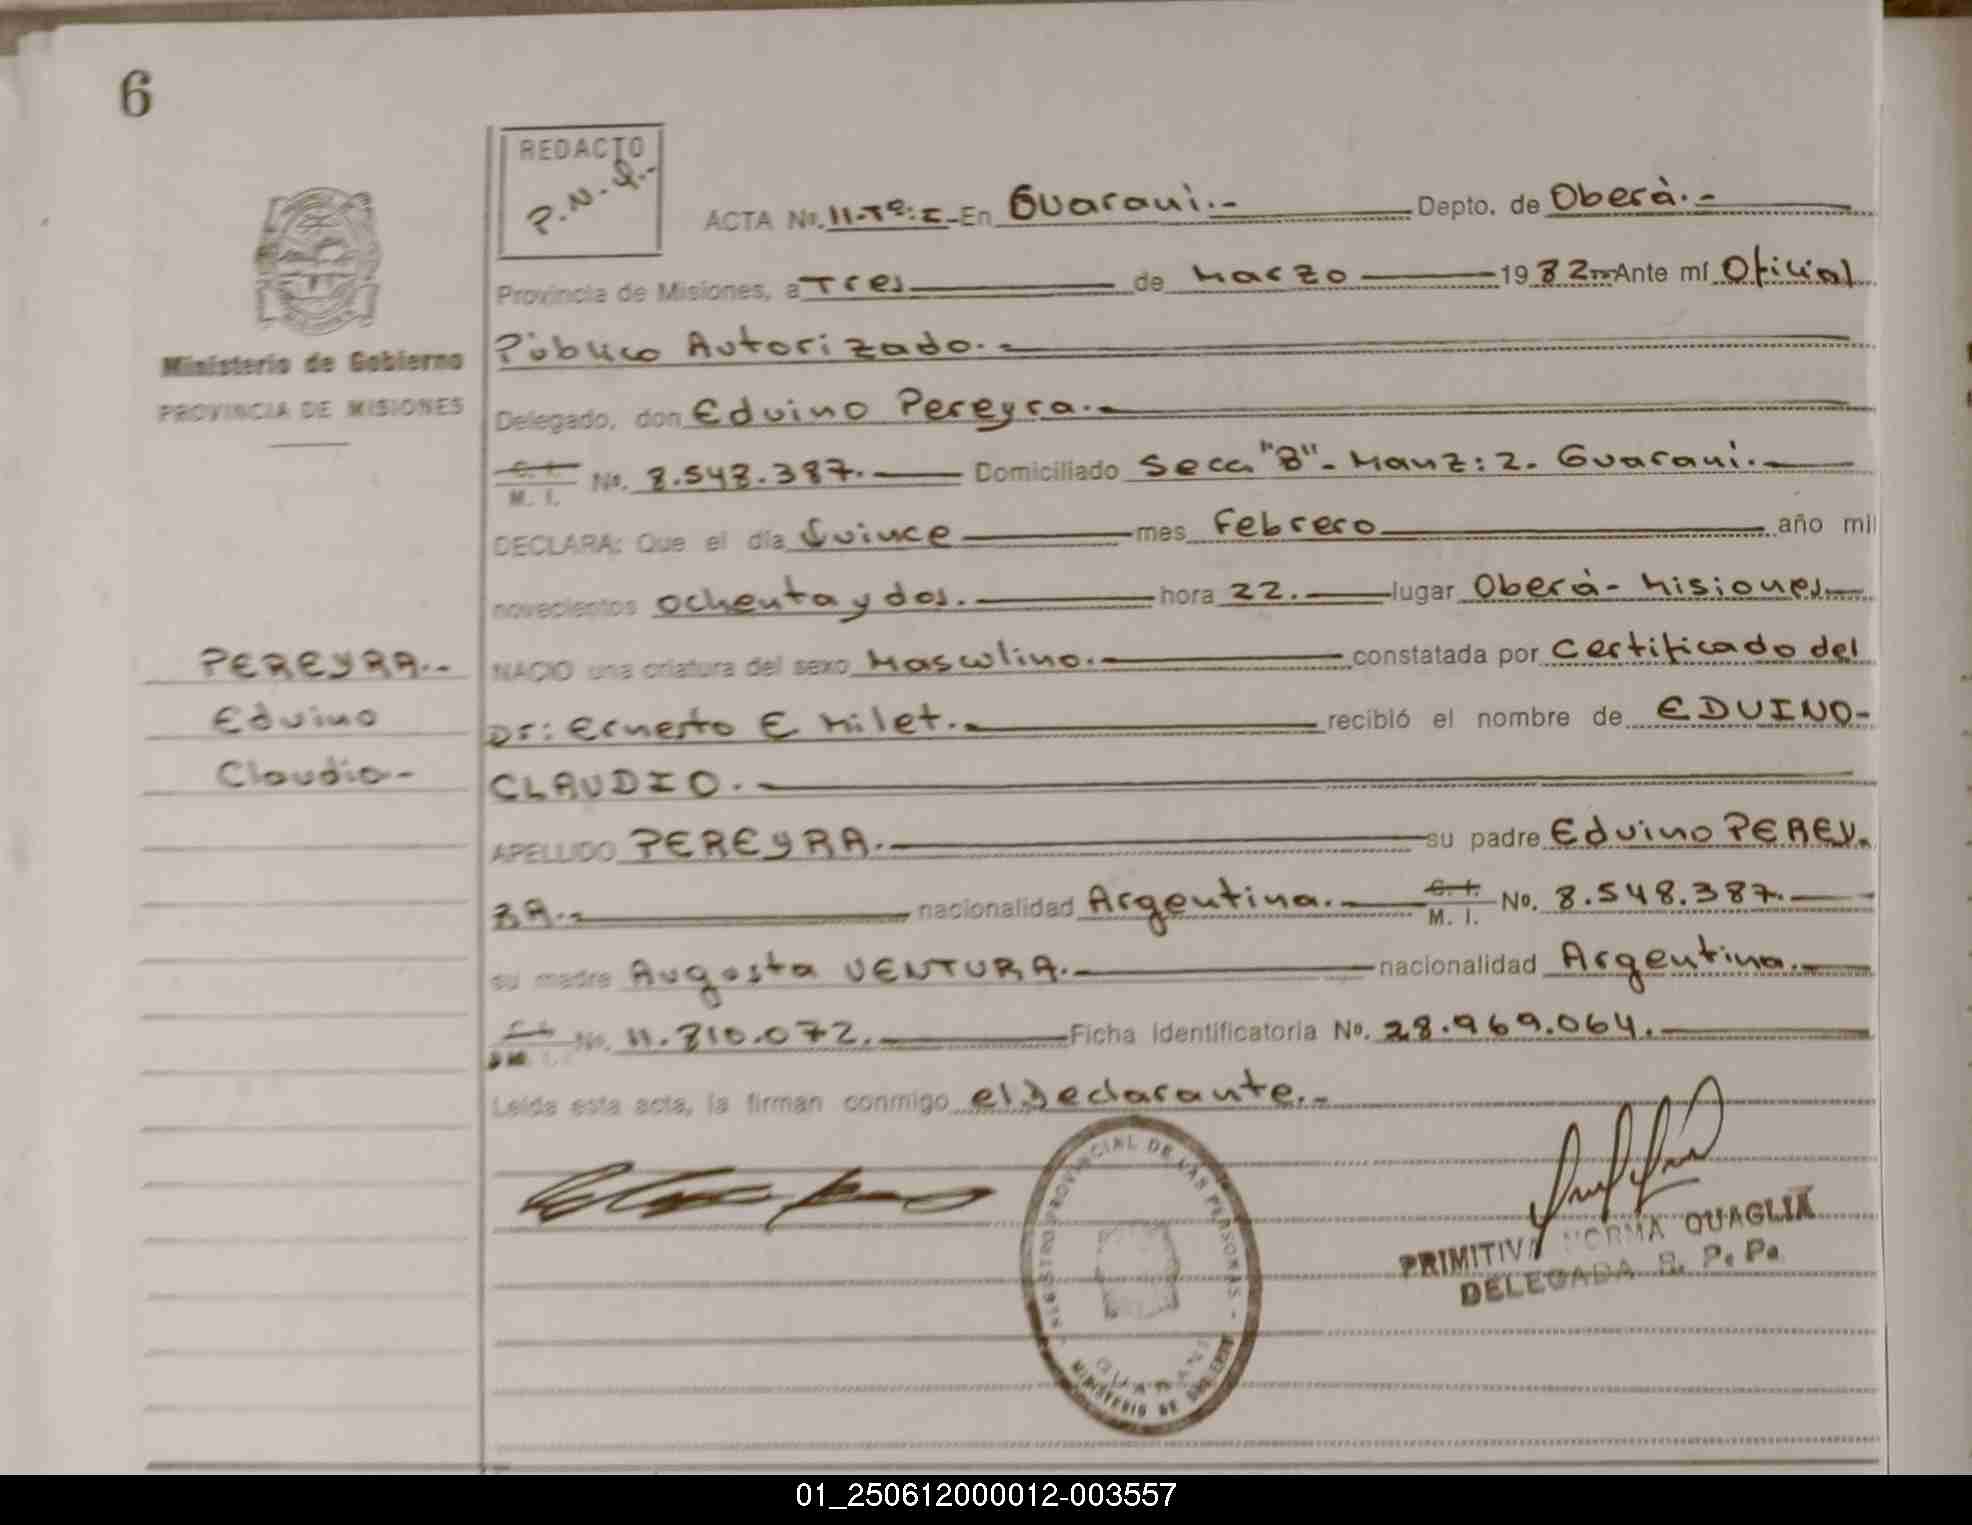 6
REDACTO
P.N.Q.-
ACTA No. 11-Tº:I-En Guarani.- Depto. de Oberà.-
Provincia de Misiones, a Tres de Marzo 1982 Ante mí Oficial
Pùblico Autorizado.-
Delegado, don Eduino Pereyra.-
C. I.
M. I. No. 8.548.387.- Domiciliado Secc "B"- Manz: 2. Guarani.-
DECLARA: Que el día Quince mes Febrero año mil
novecientos ochenta y dos. hora 22. lugar Oberà- Misiones
NACIO una criatura del sexo Masculino. constatada por Certificado del
Dr: Ernesto E Milet. recibió el nombre de EDUINO-
CLAUDIO.-
APELLIDO PEREYRA.- su padre Eduino PEREY-
RA.- nacionalidad Argentina.- C. I.
M. I. No. 8.548.387.-
su madre Augosta VENTURA.- nacionalidad Argentina.-
C. I.
No. 11.810.072.- Ficha Identificatoria No. 28.969.064.-
Leída esta acta, la firman conmigo el Declarante.-
Ministerio de Gobierno
PROVINCIA DE MISIONES
PEREYRA.-
Eduino
Claudio-
REGISTRO PROVINCIAL DE LAS PERSONAS -
GUARANI
MINISTERIO DE GOBIERNO
PRIMITIVA NORMA QUAGLIA
DELEGADA R. P. P.
01_250612000012-003557